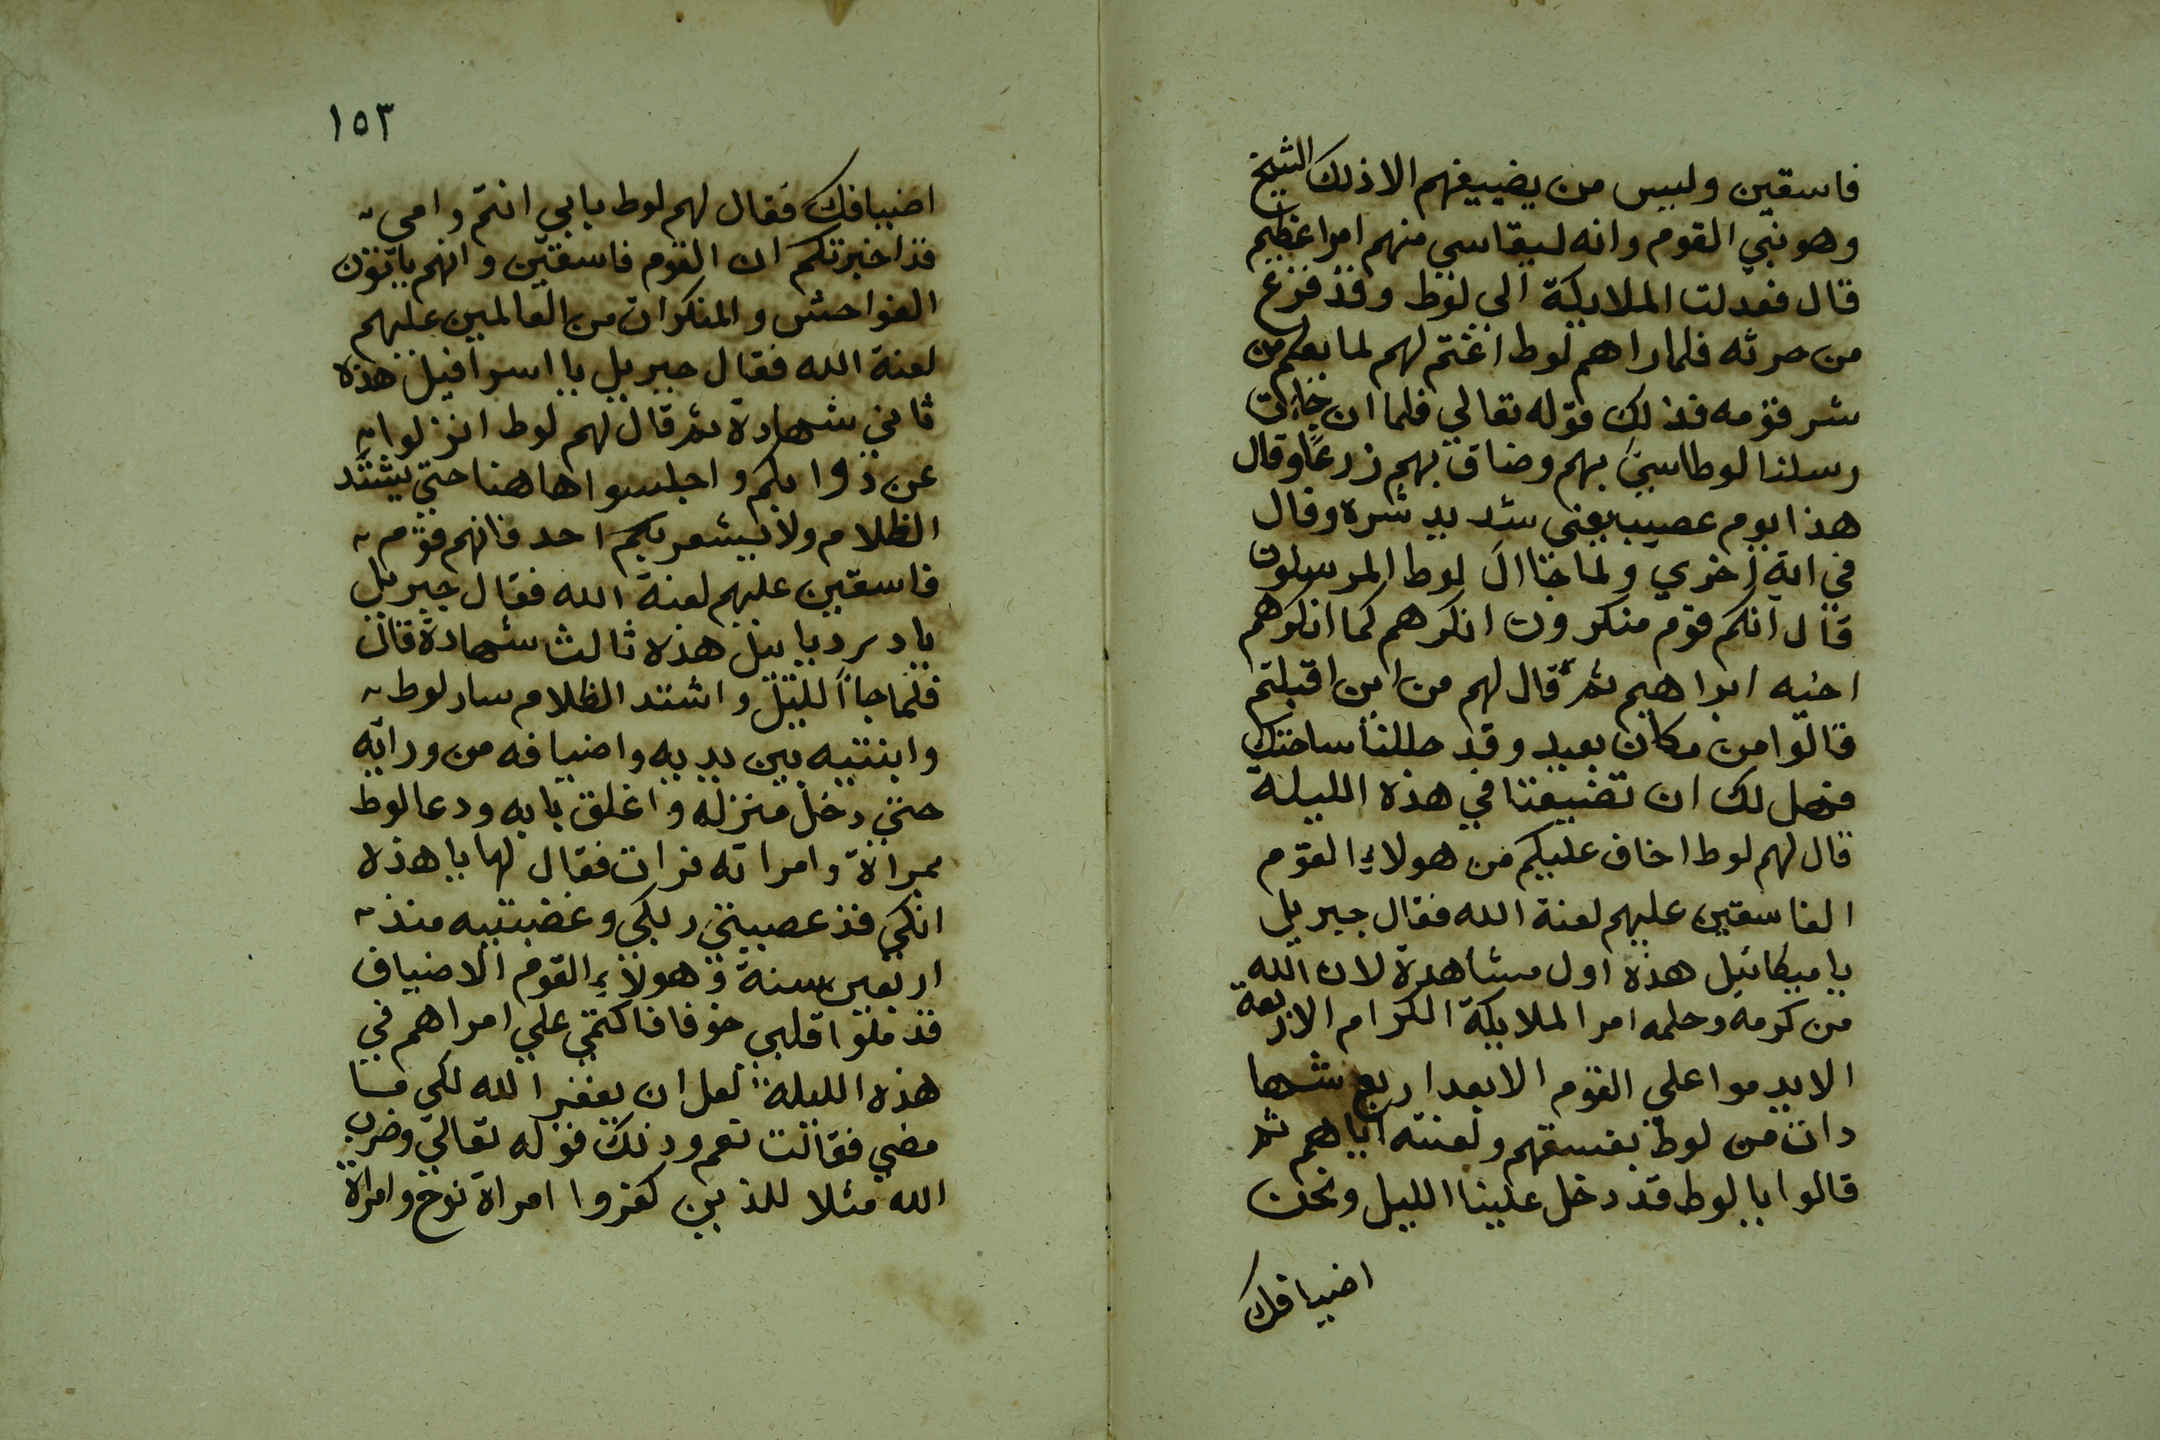 فاسقين وليس من يضيفهم الا ذلك الشيخ
وهو نبي القوم وانه ليقاسي منهم امرا عظيم
قال فعدلت الملايكة الي لوط وقد فرغ
من حرثه فلما راهم لوط اغتم لهم لما يعلم من
شر قومه فذلك قوله تعالي فلما ان جات
رسلنا لوطا سيئ بهم وضاق بهم ذرعا وقال
هذا يوم عصيب يعني شديد شره وقال
في اية اخري ولما جا ال لوط المرسلون
قال انكم قوم منكرون انكرهم كما انكرهم
اخيه ابراهيم ثم قال لهم من اين اقبلتم
قالوا من مكان بعيد وقد حللنا ساحتك
فهل لك ان تضيفنا في هذه الليلة
قال لهم لوط اخاف عليكم من هولاء القوم
الفاسقين عليهم لعنة الله فقال جبريل
يا ميكائيل هذه اول مشاهدة لان الله
من كرمه وحلمه امر الملايكة الكرام الاربعة
الا يدموا علي القوم الا بعد اربع شها
دات من لوط بفسقهم ولعنته اياهم ثم
قالوا يا لوط قد دخل علينا الليل ونحن
اضيافك
١٥٣
اضيافك فقال لهم لوط بابي انتم وامي
قد اخبرتكم ان القوم فاسقين وانهم ياتون
الفواحش والمنكرات من العالمين عليهم
لعنة الله فقال جبريل يا اسرافيل هذه
ثاني شهادة ثم قال لهم لوط انزلوا
عن دوابكم واجلسوا هاهنا حتي يشتد
الظلام ولا يشعر بكم احد فانهم قوم
فاسقين عليهم لعنة الله فقال جبريل
يا دردياييل هذه ثالث شهادة قال
فلما جا الليل واشتد الظلام سار لوط
وابنتيه بين يديه واضيافه من ورايه
حتي دخل منزله واغلق بابه ودعا لوط
بمراة وامراته فرات فقال لها يا هذه
انكي قد عصيتي ربكي وغضبتيه منذ
اربعين سنة وهولاء القوم الاضياف
قد ملوا قلبي خوفا فاكتمي علي امراهم في
هذه الليلة لعل ان يغفر الله لكي ما
مضي فقالت نعم وذلك قوله تعالي وضرب
الله مثلا للذين كفروا امراة نوح وامراة